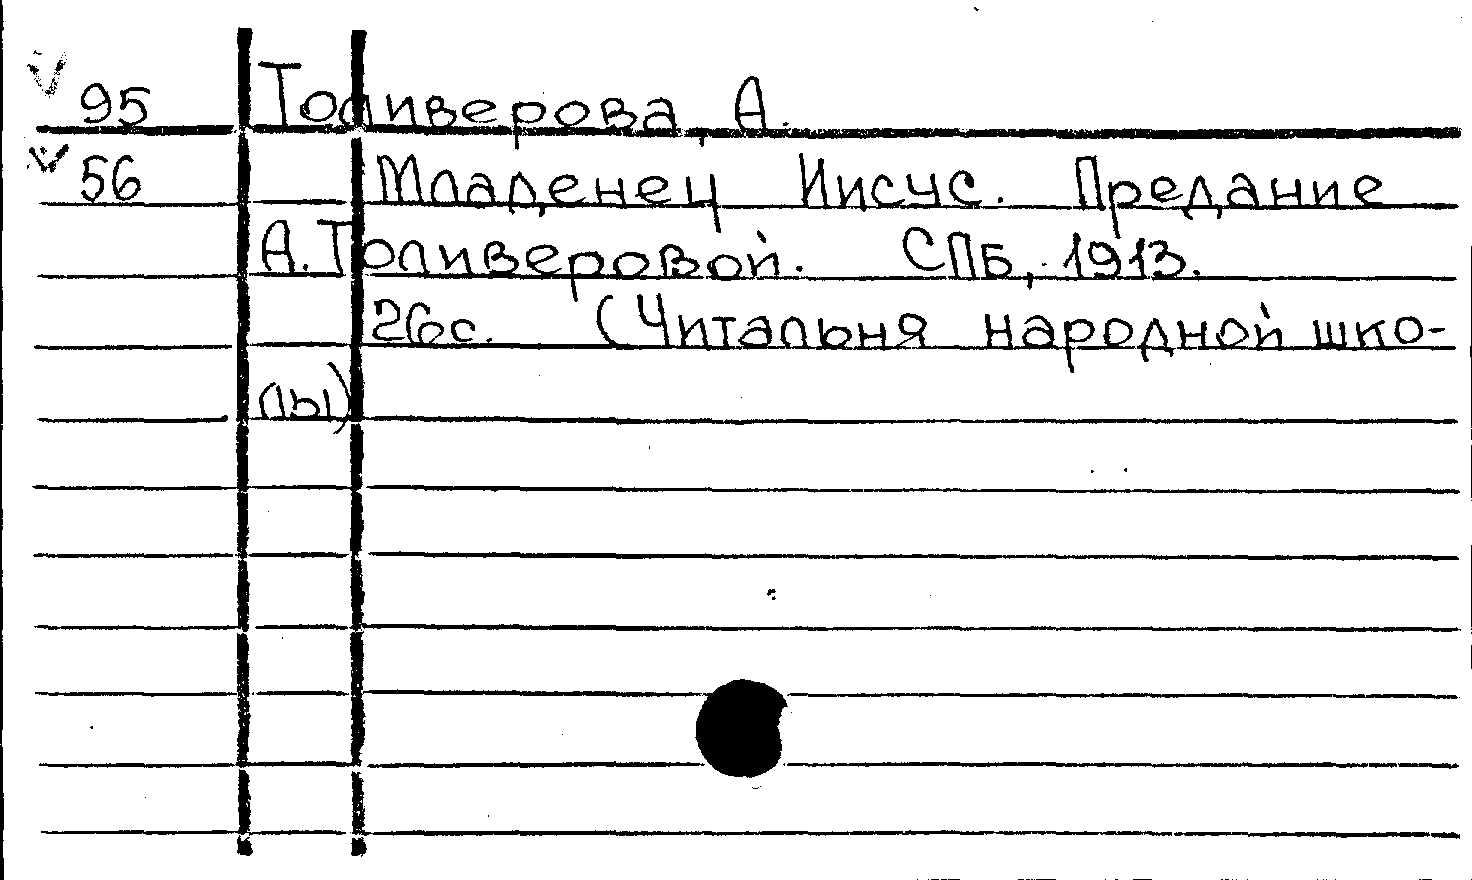 V 95 Толиверова, А.
V 56 Младенец Иисус. Предание
А. Толиверовой. СПБ, 1913.
26с. (Читальня народной шко-
лы)